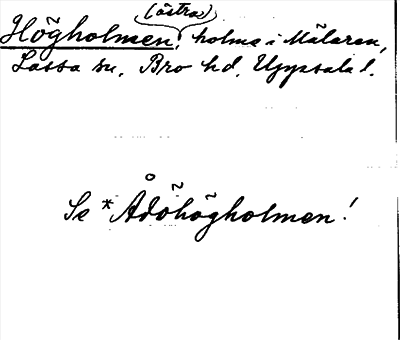 (östra)
Högholmen, holme i Mälaren,
Lossa sn, Bro hd, Uppsala l.
Se *Ådöhögholmen!